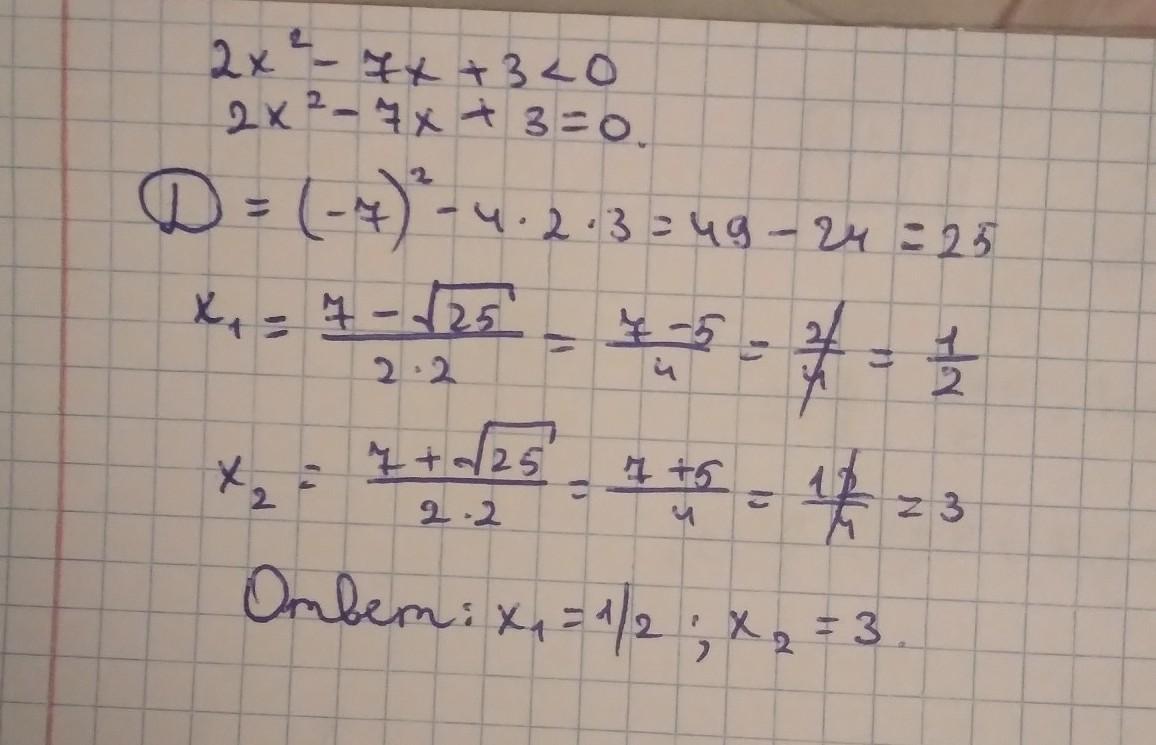 2x² - 7x + 3 < 0
2x² - 7x + 3 = 0.
D = (-7)² - 4 · 2 · 3 = 49 - 24 = 25
x₁ = (7 - √25)/(2 · 2) = (7 - 5)/4 = 2/4 = 1/2
x₂ = (7 + √25)/(2 · 2) = (7 + 5)/4 = 12/4 = 3
Ответ: x₁ = 1/2 ; x₂ = 3.